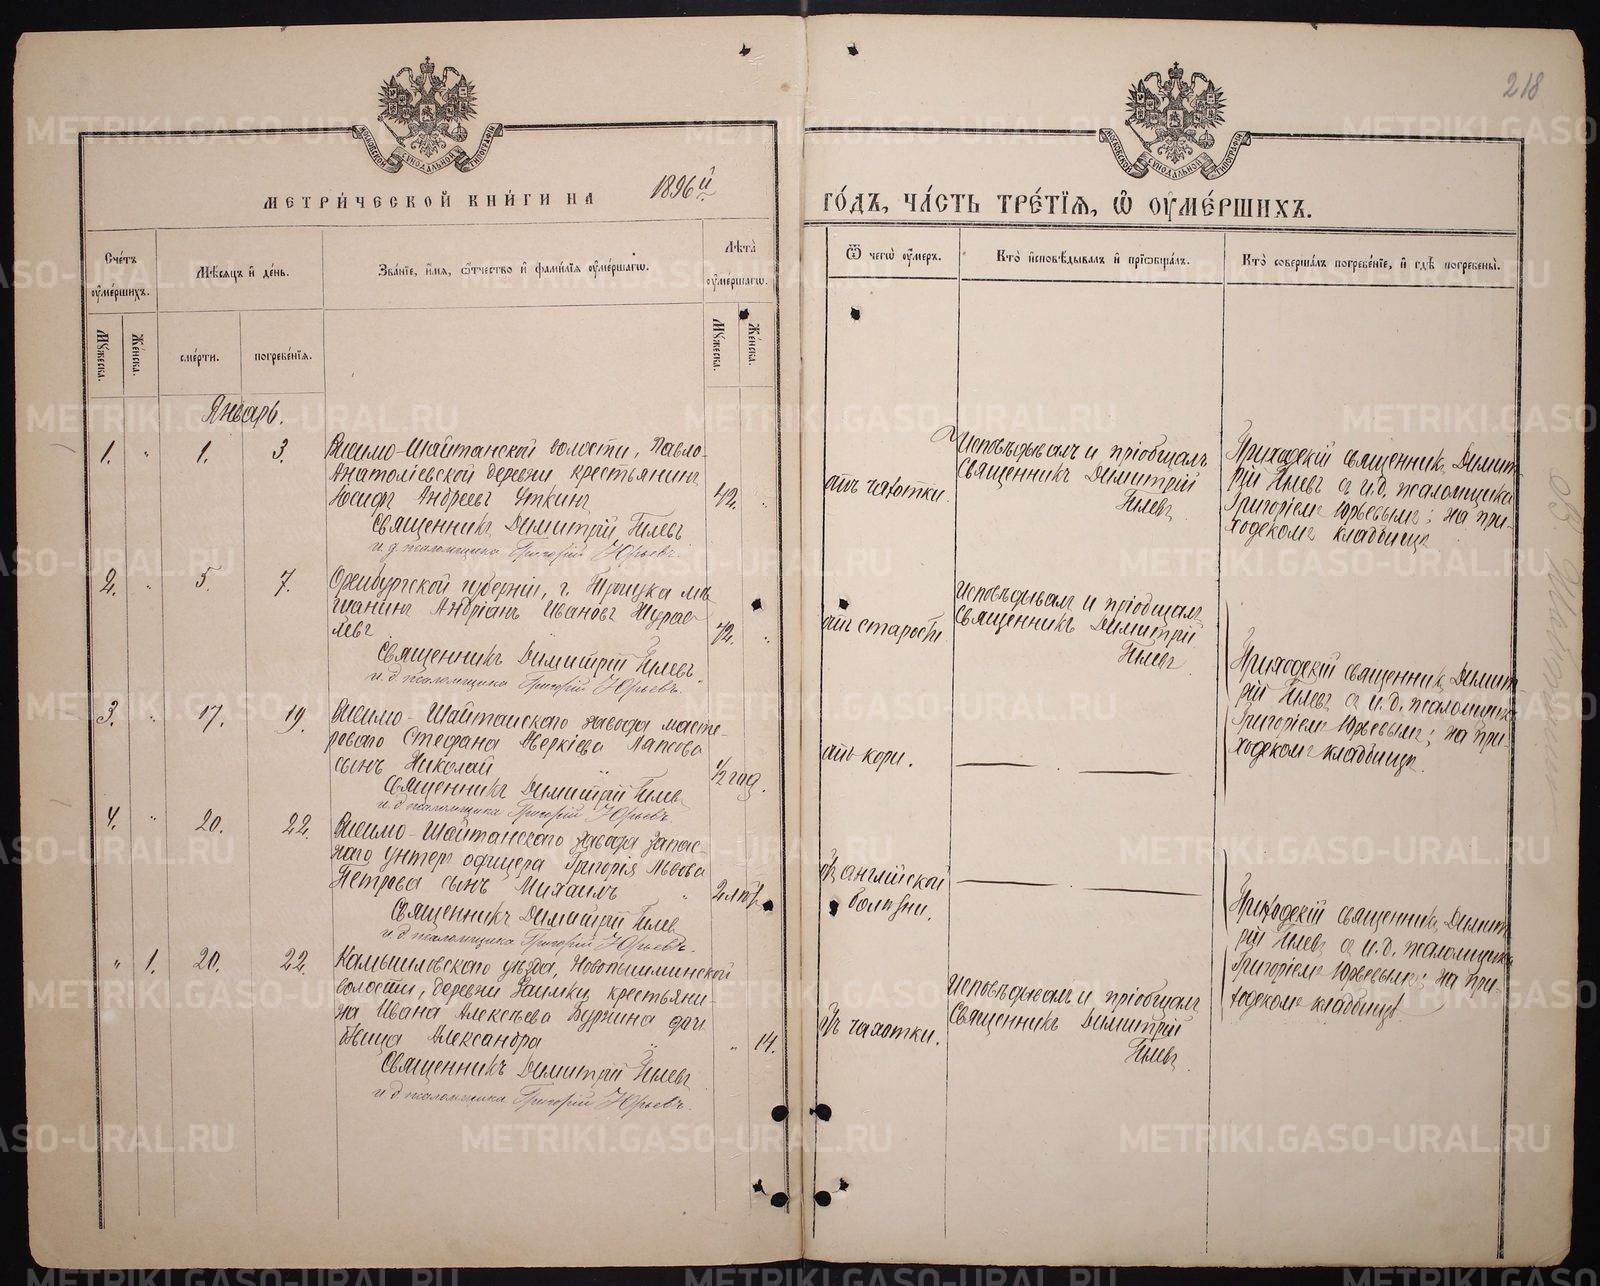 218
МОСКОВСКОЙ СѴНОДАЛЬНОЙ ТИПОГРАФІИ
МОСКОВСКОЙ СѴНОДАЛЬНОЙ ТИПОГРАФІИ
МЕТРИ́ЧЕСКОЙ КНИ́ГИ НА 1896й ГО́ДЪ, ЧА́СТЬ ТРЕ́ТІѦ, Ѡ ОУМЕ́РШИХЪ.
Сче́тъ оуме́ршихъ.
Мѣ́сѧцъ и де́нь.
Зва́ніе, и́мѧ, ѿчество и фами́ліѧ оуме́ршагѡ.
Лѣта̀ оуме́ршагѡ.
Ѿ чегѡ̀ оу́меръ.
Кто̀ и҆сповѣ́дывалъ и прїѡбща́лъ.
Кто̀ соверша́лъ погребе́нїе, и гдѣ̀ погребены̀.
Мꙋ́жеска.
Же́нска.
сме́рти.
погребе́нїѧ.
Мꙋ́жеска.
Же́нска.
Январь.
1. " 1. 3.
Висимо-Шайтанской волости, Павло-
Анатоліевской деревни крестьянинъ
Іосифъ Андреевъ Уткинъ
42. "
Священникъ Димитрій Гилевъ
и. д. псаломщика Григорій Юрьевъ.
отъ чахотки.
Исповѣдывалъ и пріобщалъ
Священникъ Димитрій
Гилевъ
Приходскій священникъ Димит
рій Гилевъ съ и. д. псаломщика
Григоріемъ Юрьевымъ; на при-
ходскомъ кладбищѣ
2. " 5. 7.
Оренбургской губерніи, г. Троицка мѣ
щанинъ Андріанъ Ивановъ Журав
левъ
72. "
Священникъ Димитрій Гилевъ
и. д. псаломщика Григорій Юрьевъ.
отъ старости
Исповѣдывалъ и пріобщалъ
Священникъ Димитрій
Гилевъ
Приходскій священникъ Димит
рій Гилевъ съ и. д. псаломщика
Григоріемъ Юрьевымъ; на при-
ходскомъ кладбищѣ.
3. " 17. 19.
Висимо-Шайтанского завода масте-
роваго Стефана Аверкіева Лапсова
сынъ Николай
1/2 год.
Священникъ Димитрій Гилевъ
и. д. псаломщика Григорій Юрьевъ.
отъ кори.
4. " 20. 22.
Висимо-Шайтанского завода запас-
наго унтеръ офицера Григорія Львова
Петрова сынъ Михаилъ
2 лѣт.
Священникъ Димитрій Гилевъ
и. д. псаломщика Григорій Юрьевъ.
отъ англійской
болѣзни.
Приходскій священникъ Димит
рій Гилевъ съ и. д. псаломщика
Григоріемъ Юрьевымъ; на при-
ходскомъ кладбищѣ
" 1. 20. 22.
Камышловского уѣзда, Новопышминской
волости, деревни Заимки крестьяни-
на Ивана Алексѣева Буркина дѣ
вица Александра
" 14.
Священникъ Димитрій Гилевъ
и. д. псаломщика Григорій Юрьевъ.
отъ чахотки.
Исповѣдывалъ и пріобщалъ
Священникъ Димитрій
Гилевъ
METRIKI.GASO-URAL.RU